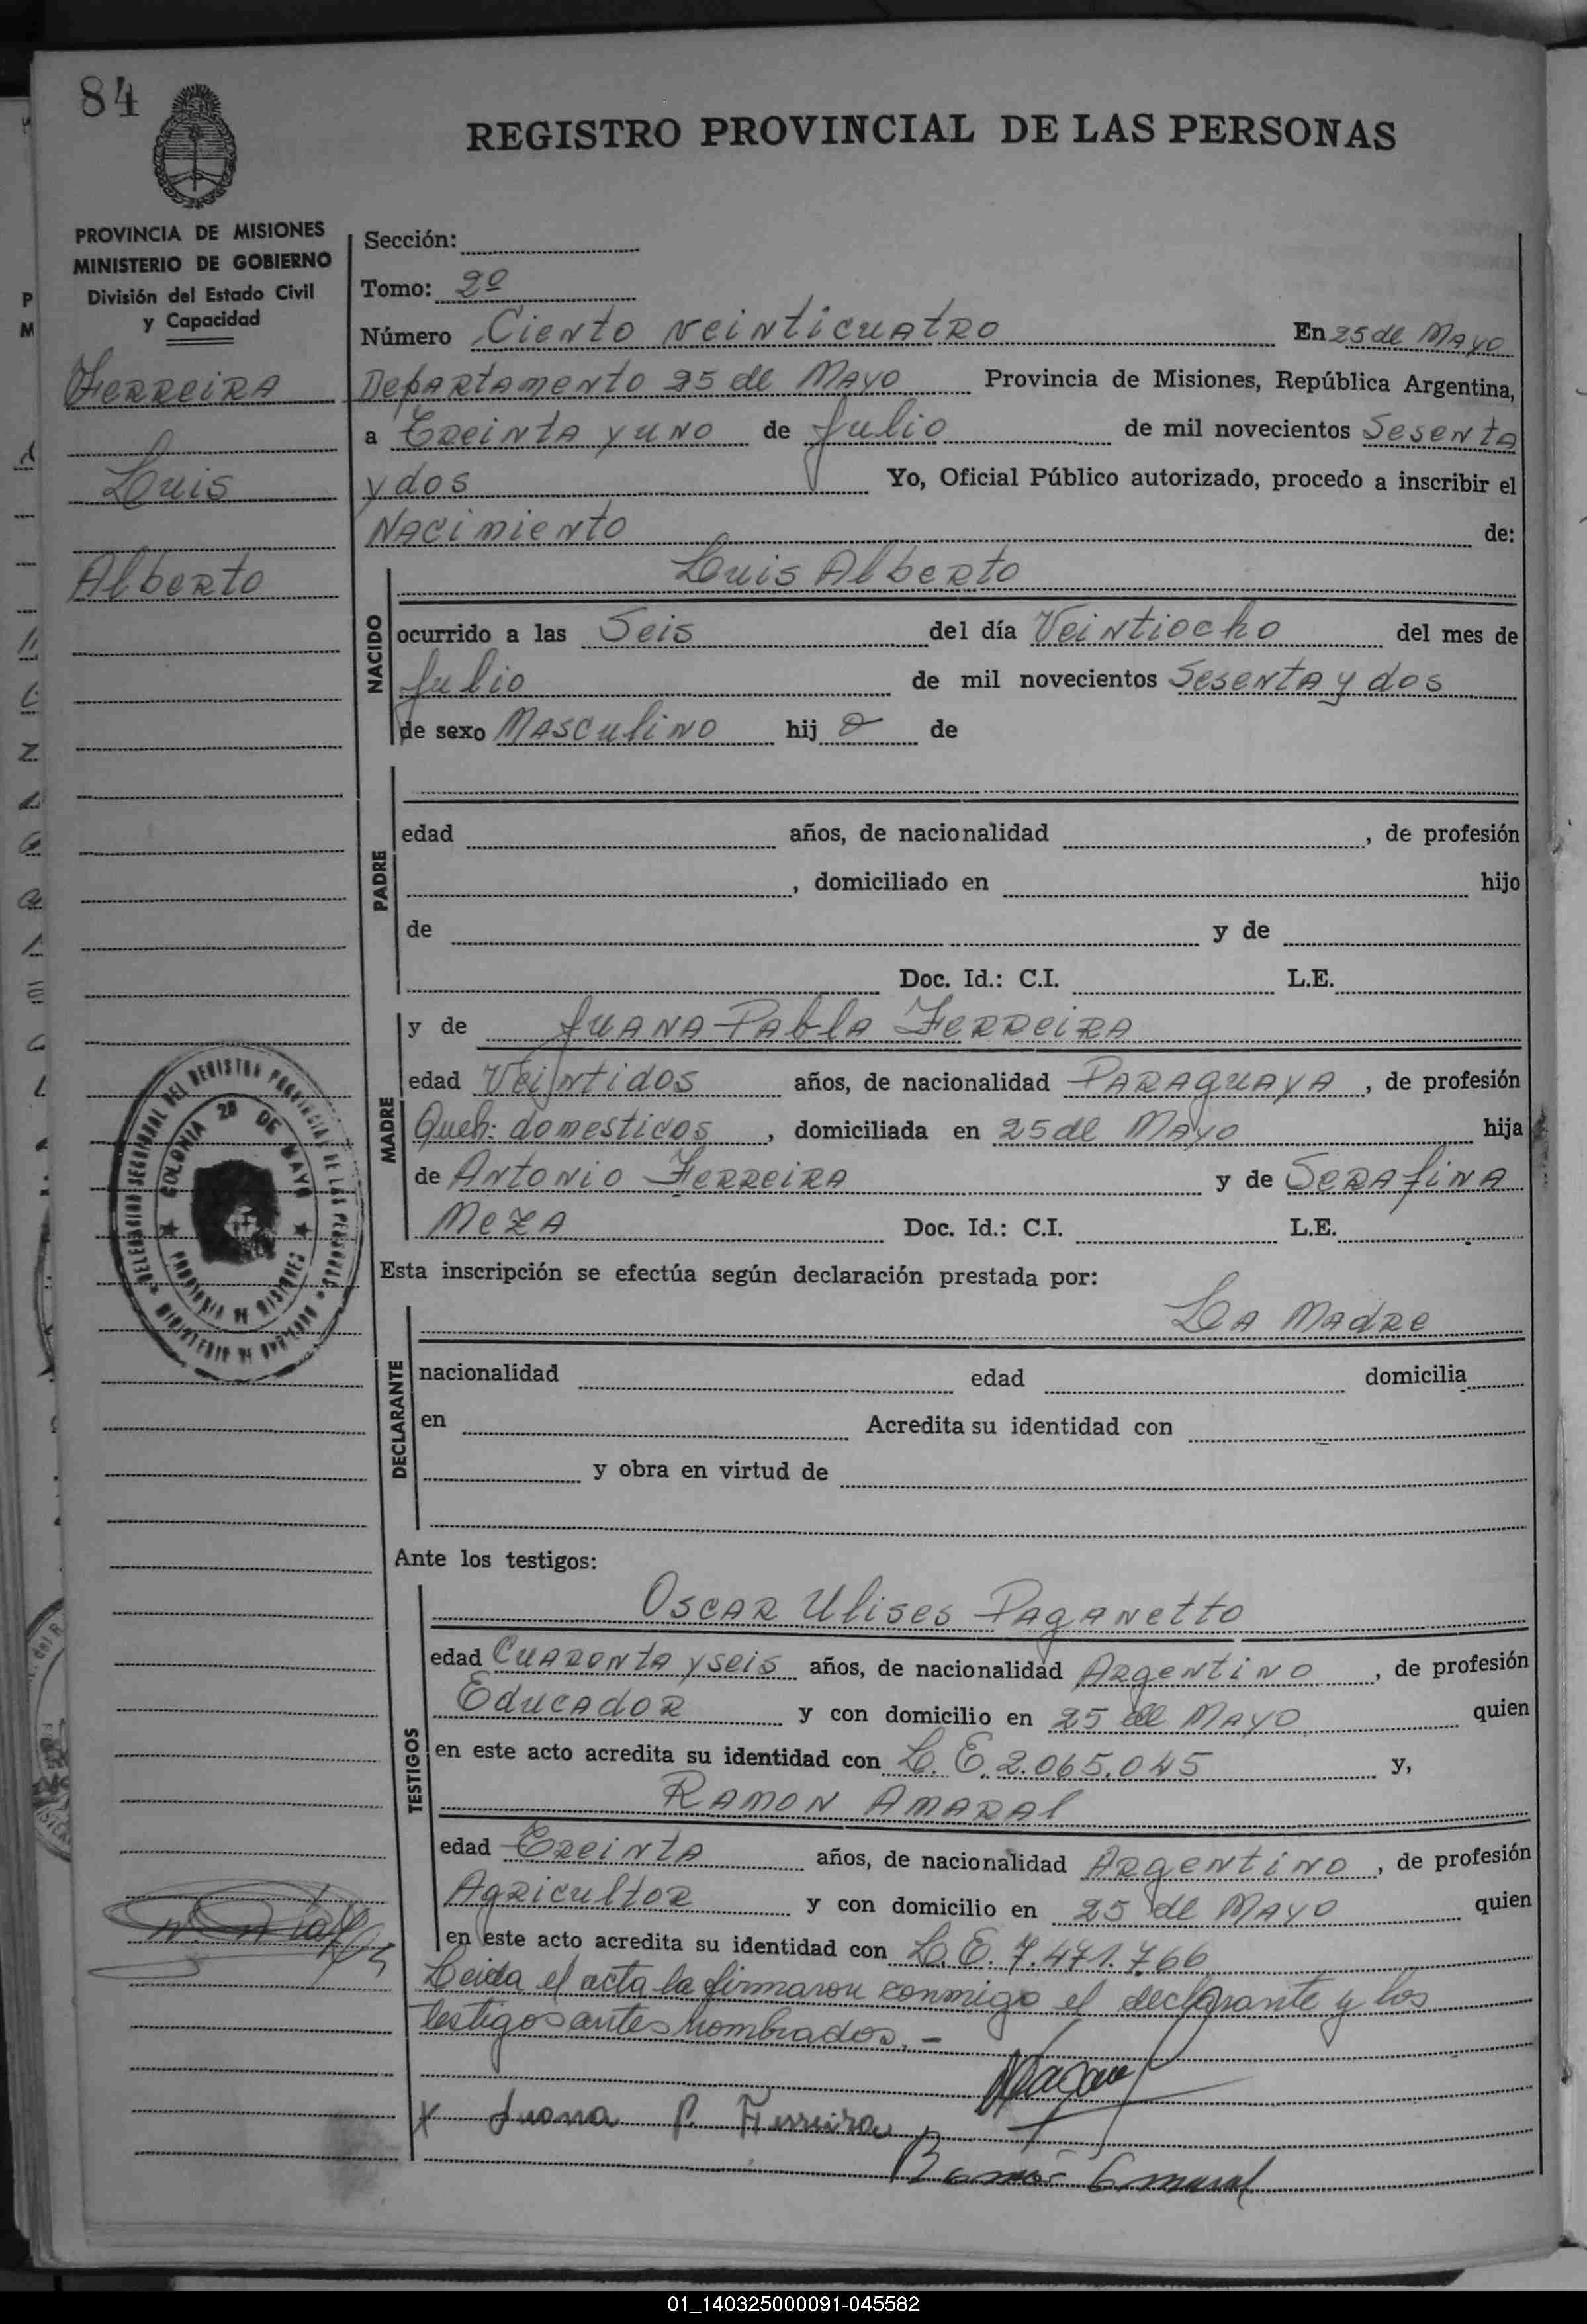 84
REGISTRO PROVINCIAL DE LAS PERSONAS
PROVINCIA DE MISIONES
MINISTERIO DE GOBIERNO
División del Estado Civil
y Capacidad
Ferreira
Luis
Alberto
Sección:
Tomo: 2º
Número Ciento veinticuatro En 25 de Mayo
Departamento 25 de Mayo Provincia de Misiones, República Argentina,
a Treinta y uno de Julio de mil novecientos Sesenta
y dos Yo, Oficial Público autorizado, procedo a inscribir el
Nacimiento de:
Luis Alberto
NACIDO
ocurrido a las Seis del día Veintiocho del mes de
Julio de mil novecientos Sesenta y dos
de sexo Masculino hij o de
PADRE
edad años, de nacionalidad , de profesión
, domiciliado en hijo
de y de
Doc. Id.: C.I. L.E.
MADRE
y de Juana Pabla Ferreira
edad Veintidos años, de nacionalidad Paraguaya, de profesión
Queh: domesticos, domiciliada en 25 de Mayo hija
de Antonio Ferreira y de Serafina
Meza Doc. Id.: C.I. L.E.
DELEGACION SECCIONAL DEL REGISTRO PROVINCIAL DE LAS PERSONAS
COLONIA 25 DE MAYO
PROVINCIA DE MISIONES
MINISTERIO DE GOBIERNO
Esta inscripción se efectúa según declaración prestada por:
La Madre
DECLARANTE
nacionalidad edad domicilia
en Acredita su identidad con
y obra en virtud de
Ante los testigos:
TESTIGOS
Oscar Ulises Paganetto
edad Cuarenta y seis años, de nacionalidad Argentino, de profesión
Educador y con domicilio en 25 de Mayo quien
en este acto acredita su identidad con L. E. 2.065.045 y,
Ramon Amaral
edad Treinta años, de nacionalidad Argentino, de profesión
Agricultor y con domicilio en 25 de Mayo quien
en este acto acredita su identidad con L. E. 7.471.766
Leida el acta la firmaron conmigo el declarante y los
testigos antes nombrados.-
x Juana P. Ferreira
Ramón Amaral
01_140325000091-045582